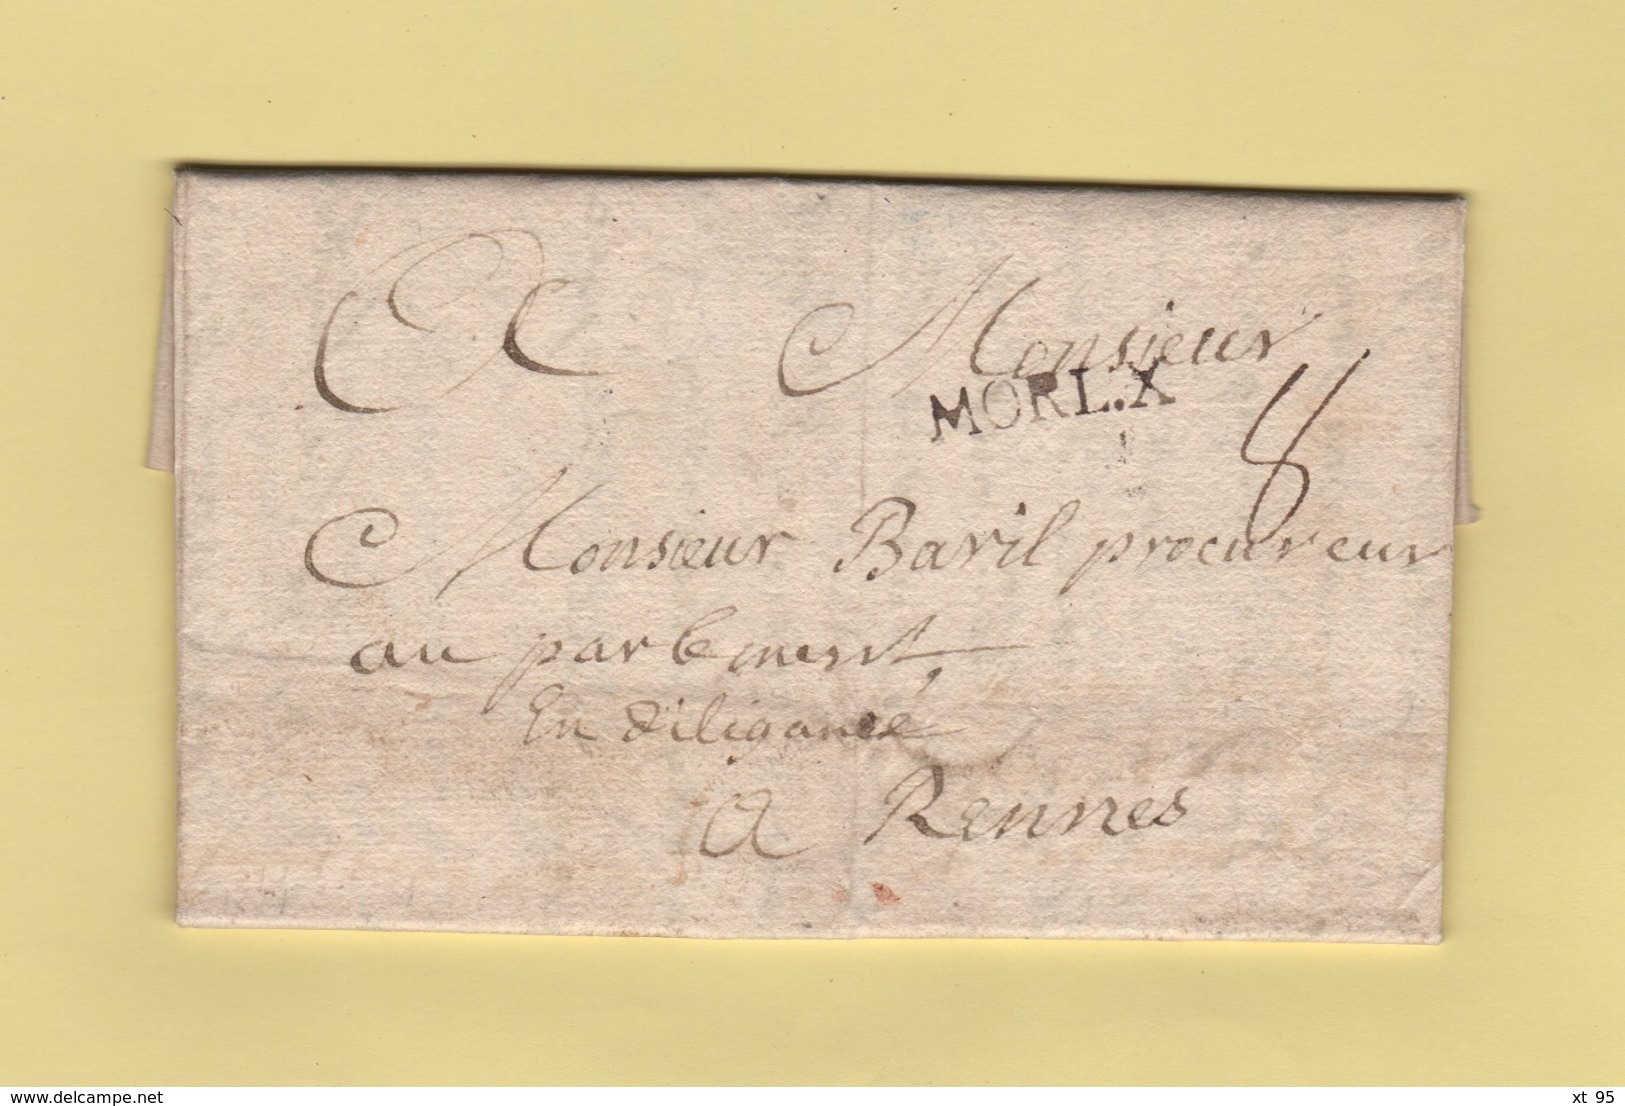 A Monsieur
MORL.X
8
Monsieur Baril procureur
au parlement,
En diligance
A Rennes
delcampe.net
xt 95